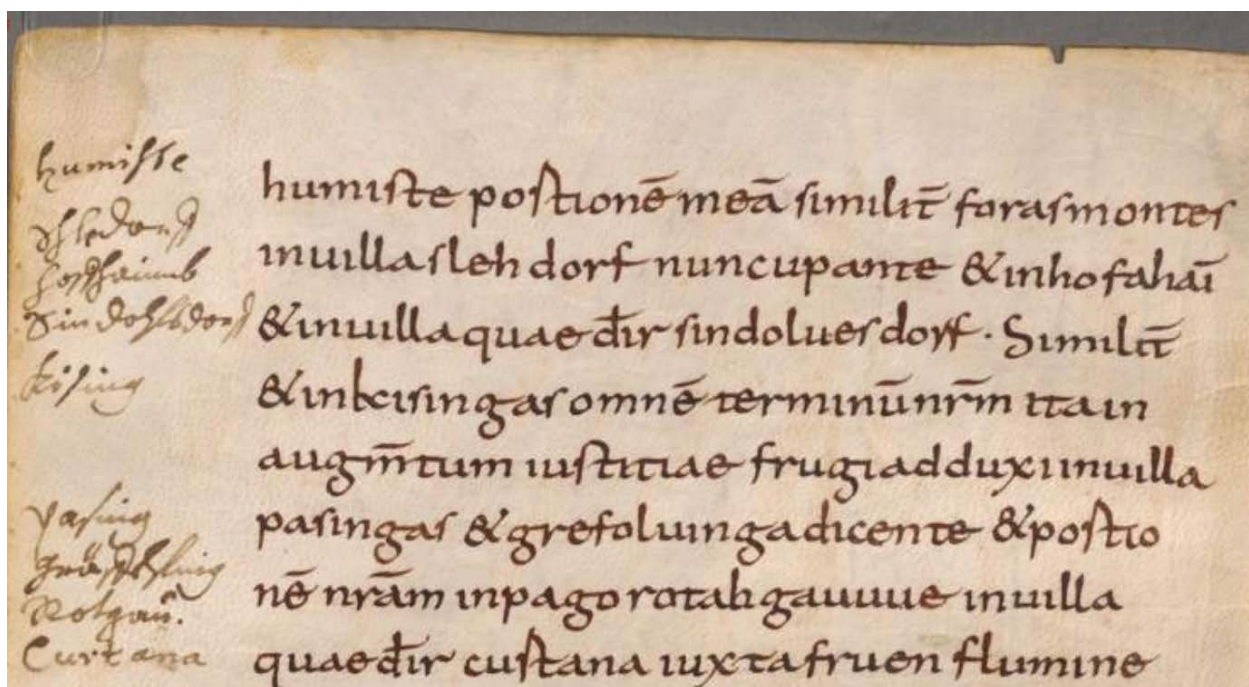 humiste
Schledorf
Hoffhaimb
Sindolsdorf
Kising
Pasing
Rotgaü.
Curtana
humiste postionē meā similit̄ foras montes
inuilla sleh dorf nuncupante & inho fahaī
& inuilla quae dr̄ sindoluesdorf · Similit̄
& inkisingas omnē terminūnrm̄ ita in
augm̄tum iustitiae frugi adduxi inuilla
pasingas & grefoluinga dicente & postio
nē nrām inpago rotahgauuue inuilla
quae dr̄ custana iuxta fruen flumine